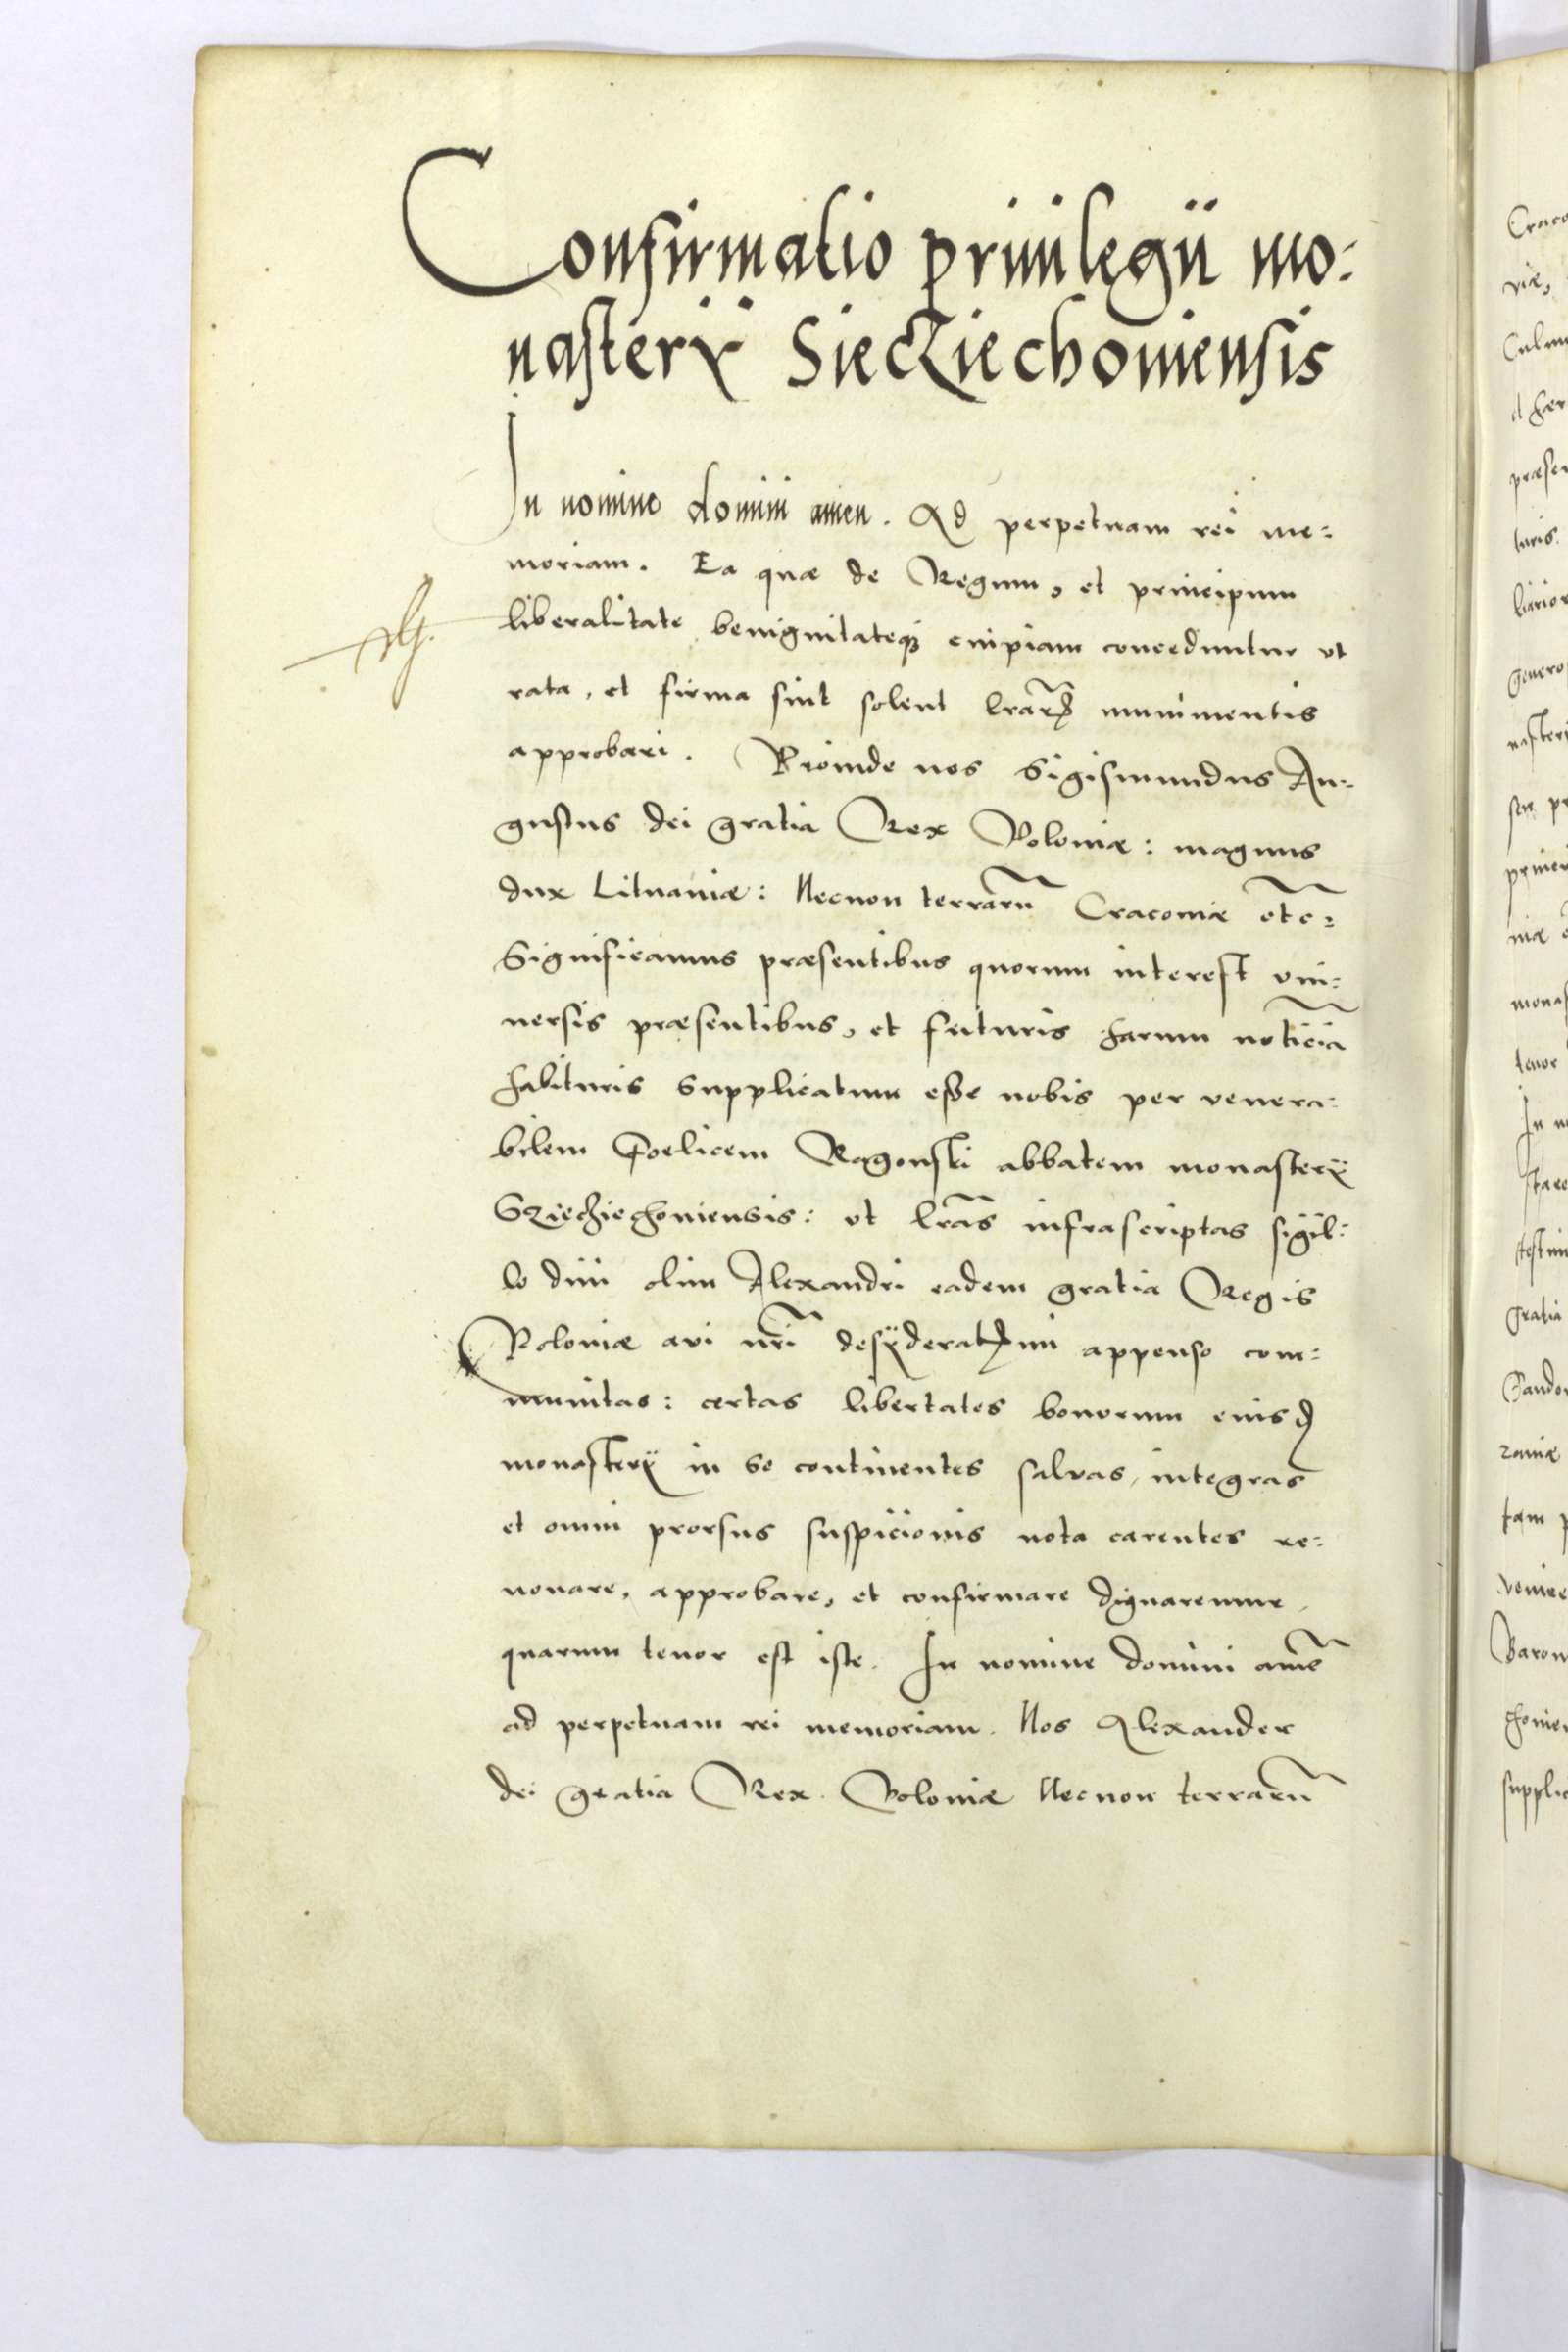 Confirmatio priuilegii mo:
nasterÿ Sieckiechouiensis
In nomine domini amen. Ad perpetuam rei me:
moriam. Ea quæ de Regum, et principum
liberalitate benignitateq3 cuipiam conceduntur vt
rata, et firma sint solent lrãrꝝ munimentis
approbari. Proinde nos Sigismundus Au:
gustus dei gratia Rex Poloniæ: magnus
dux Lituaniæ: Necnon terrarũ Cracouiæ etc:
Significamus præsentibus quorum interest vni:
uersis præsentibus, et futuris harum noticiã
habituris Supplicatum esse nobis per venera:
bilem Foelicem Rogouski abbatem monasterÿ
Sziecziechouiensis: vt lrãs infrascriptas sigil:
lo diui olim Alexandri eadem gratia Regis
Poloniæ aui nrĩ desÿderatꝭimi appenso com:
munitas: certas libertates bonorum eiusd
monasterÿ in se continentes saluas, integras
et omni prorsus suspicionis nota carentes re:
nouare, approbare, et confirmare dignaremur
quarum tenor est iste. In nomine domini amẽ
ad perpetuam rei memoriam. Nos Alexander
dei gratia Rex Poloniæ Necnon terrarũ
Craco
uiæ,
Culm
et hær
præsen
turis.
liario
genero
naster
seu pr
princi
niæ
monas
tenor
In n
stare
testim
gratia
Sando
raniæ
tam p
venire
Baron
chouie
supplic